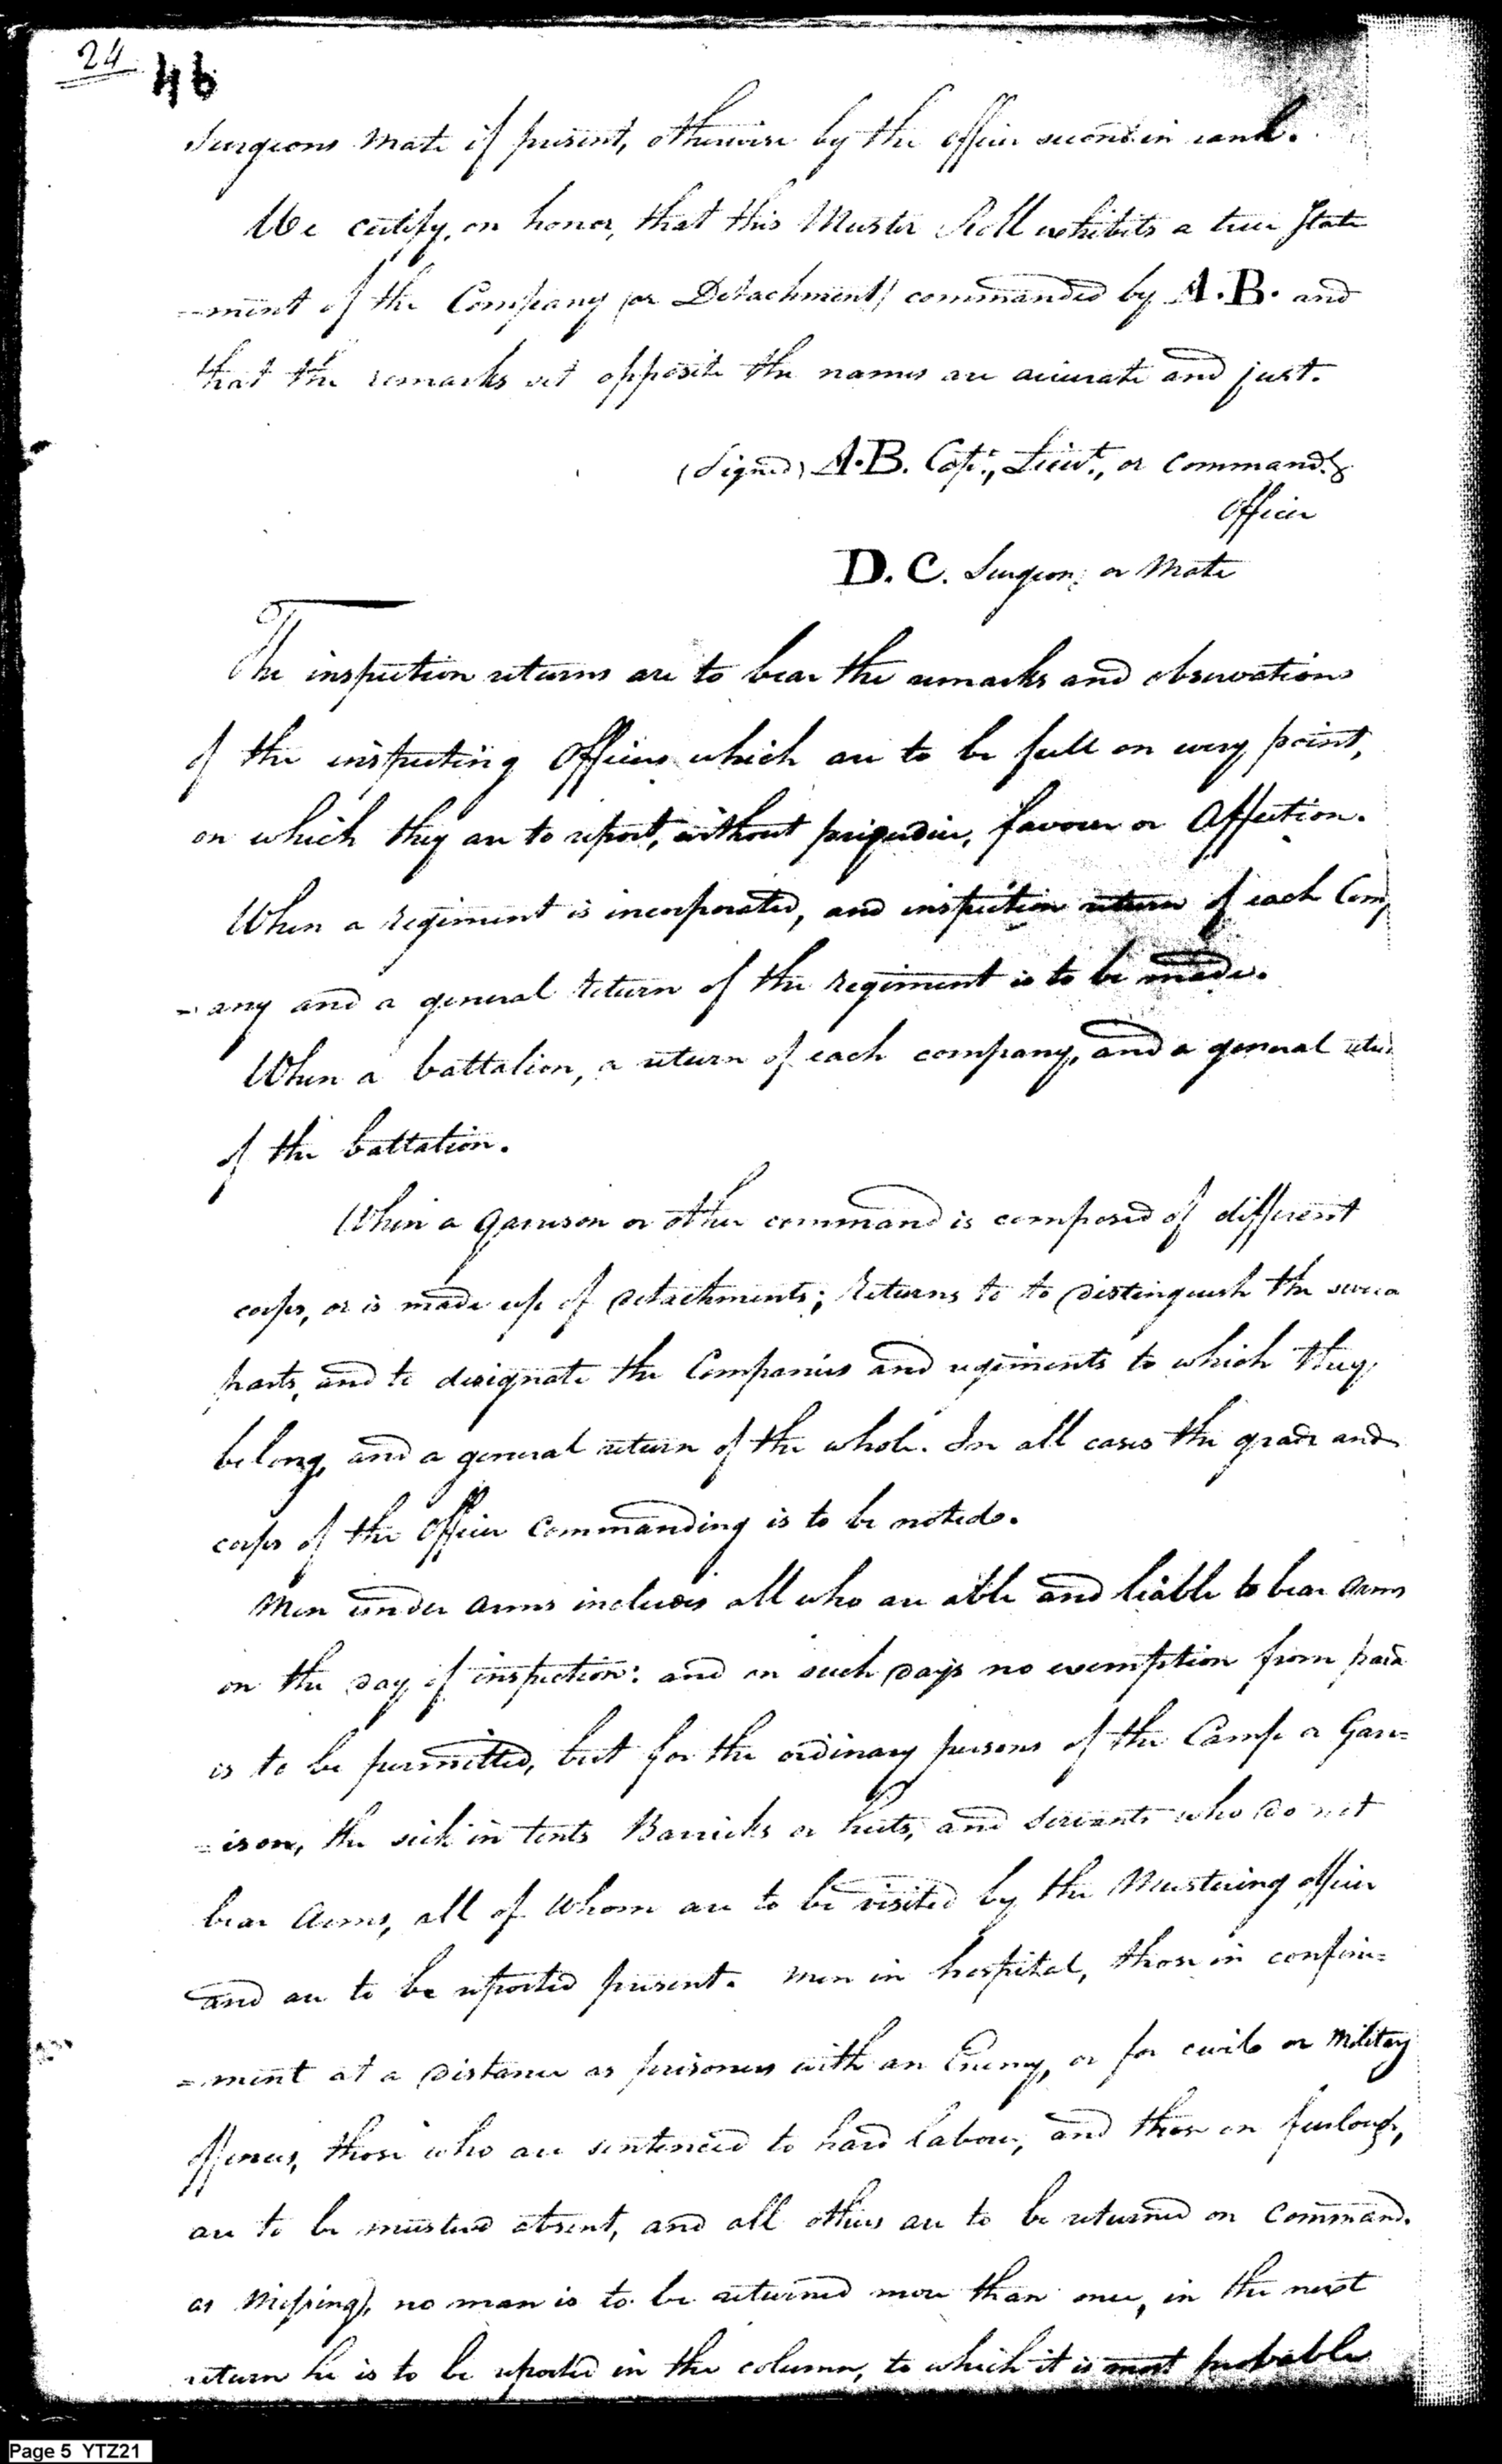 24
46
Surgeons Mate if present, otherwise by the officer second in rank.
We certify, on honor, that this Muster Roll exhibits a true State
-ment of the Company (or Detachment) commanded by A.B. and
that the remarks set opposite the names are accurate and just.
(Signed) A.B. Capt., Lieut., or Command.g
Officer
D.C. Surgeon, or Mate
The inspection returns are to bear the remarks and observations
of the inspecting Officers which are to be full on every point,
on which they are to report, without prejudice, favour or Affection.
When a regiment is incorporated, and inspection return of each Com,
-any and a general return of the regiment is to be made.
When a battalion, a return of each company, and a general
of the battation.
When a Garrison or other command is composed of different
corps, or is made up of detachments; returns to to distinguish the
parts, and to designate the Companies and regiments to which they
belong, and a general return of the whole. In all cases the grade and
corps of the Officer Commanding is to be noted.
Men under arms includes all who are able and liable to bear Arms
on the day of inspection: and on such days no exemption from
is to be permitted, but for the ordinary persons of the Camp or Garr=
=ison, the sick in tents Barricks or huts, and Servants who do not
bear Arms, all of whom are to be visited by the Mustering officer
and are to be reported present. Men in hospital, those in confine=
=ment at a distance as prisoners with an Enemy, or for civil or Military
offences, those who are sentenced to hard labour, and those on furlough,
are to be mustered absent, and all others are to be returned on Command.
as Missing, no man is to be returned more than once, in the next
return he is to be reported in the column, to which it is most probable
Page 5 YTZ21